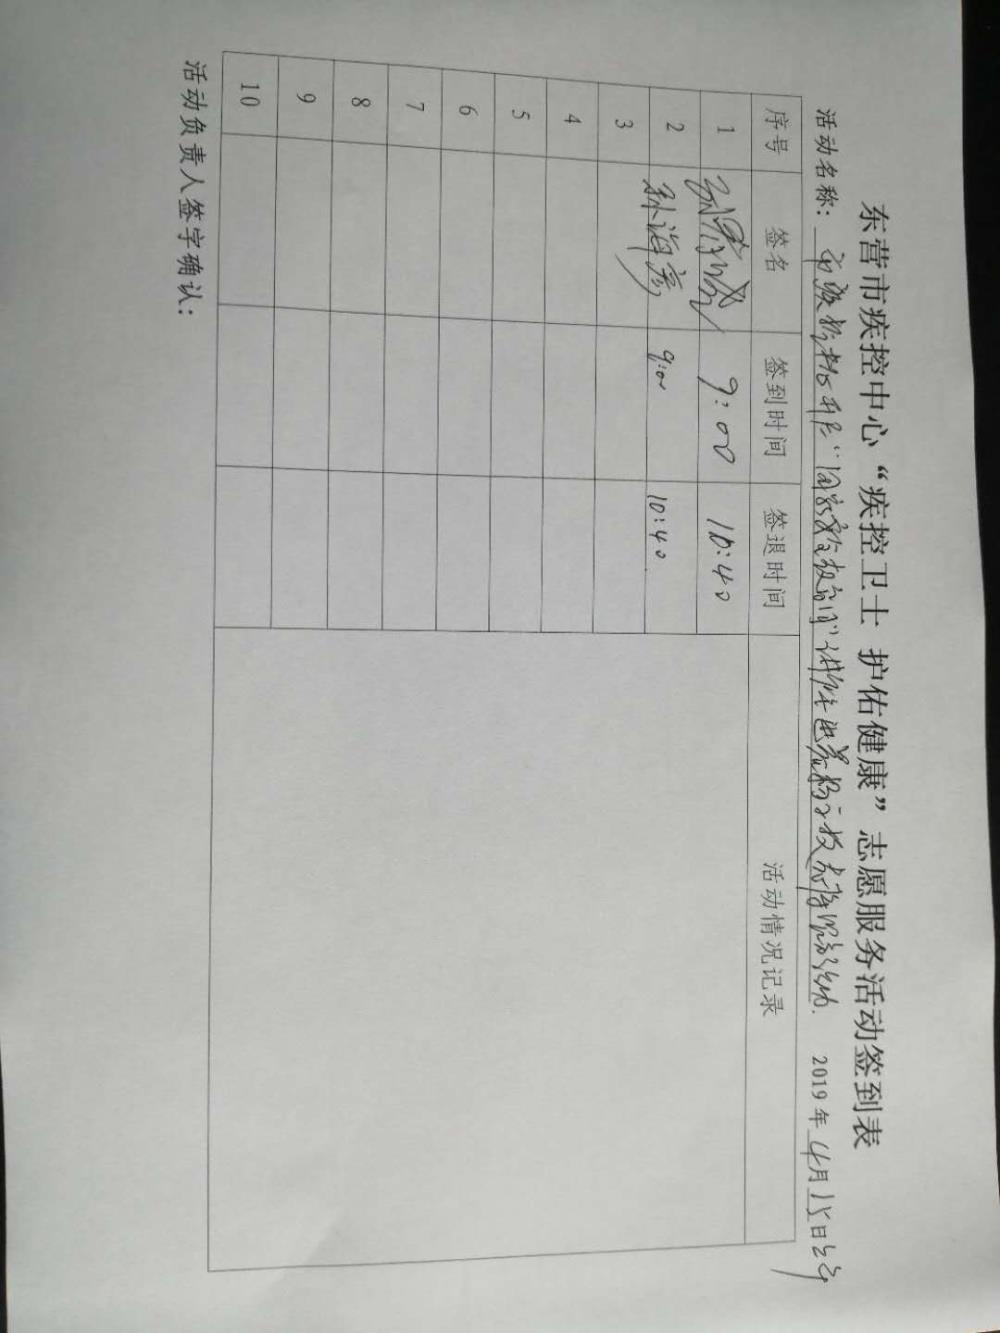 东营市疾控中心“疾控卫士 护佑健康”志愿服务活动签到表
活动名称： 2019年4月15日上午
序号 签名 签到时间 签退时间 活动情况记录
1 9:00 10:40
2 孙海彦 9:00 10:40
3
4
5
6
7
8
9
10
活动负责人签字确认：